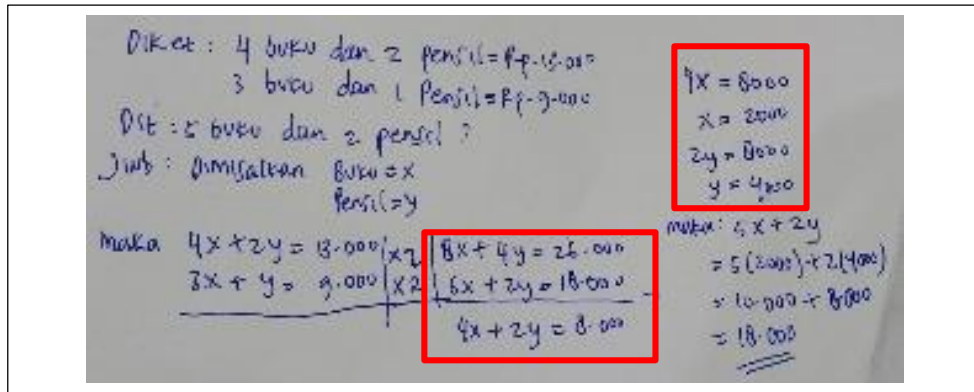 Diket : 4 buku dan 2 pensil = Rp. 13.000
3 buku dan 1 Pensil = Rp. 9.000
Dit : 5 buku dan 2 pensil ?
Jwb : Dimisalkan Buku = x
Pensil = y
maka 4x + 2y = 13.000 | x2 | 8x + 4y = 26.000
3x + y = 9.000 | x2 | 6x + 2y = 18.000
4x + 2y = 8.000
4x = 8000
x = 2000
2y = 8000
y = 4000
maka : 5x + 2y
= 5(2000) + 2(4000)
= 10.000 + 8.000
= 18.000